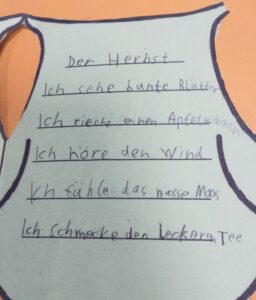 Der Herbst
Ich sehe bunte Blätter
Ich rieche einen
Ich höre den Wind
Ich fühle das nasse Moos
Ich schmecke den leckeren Tee